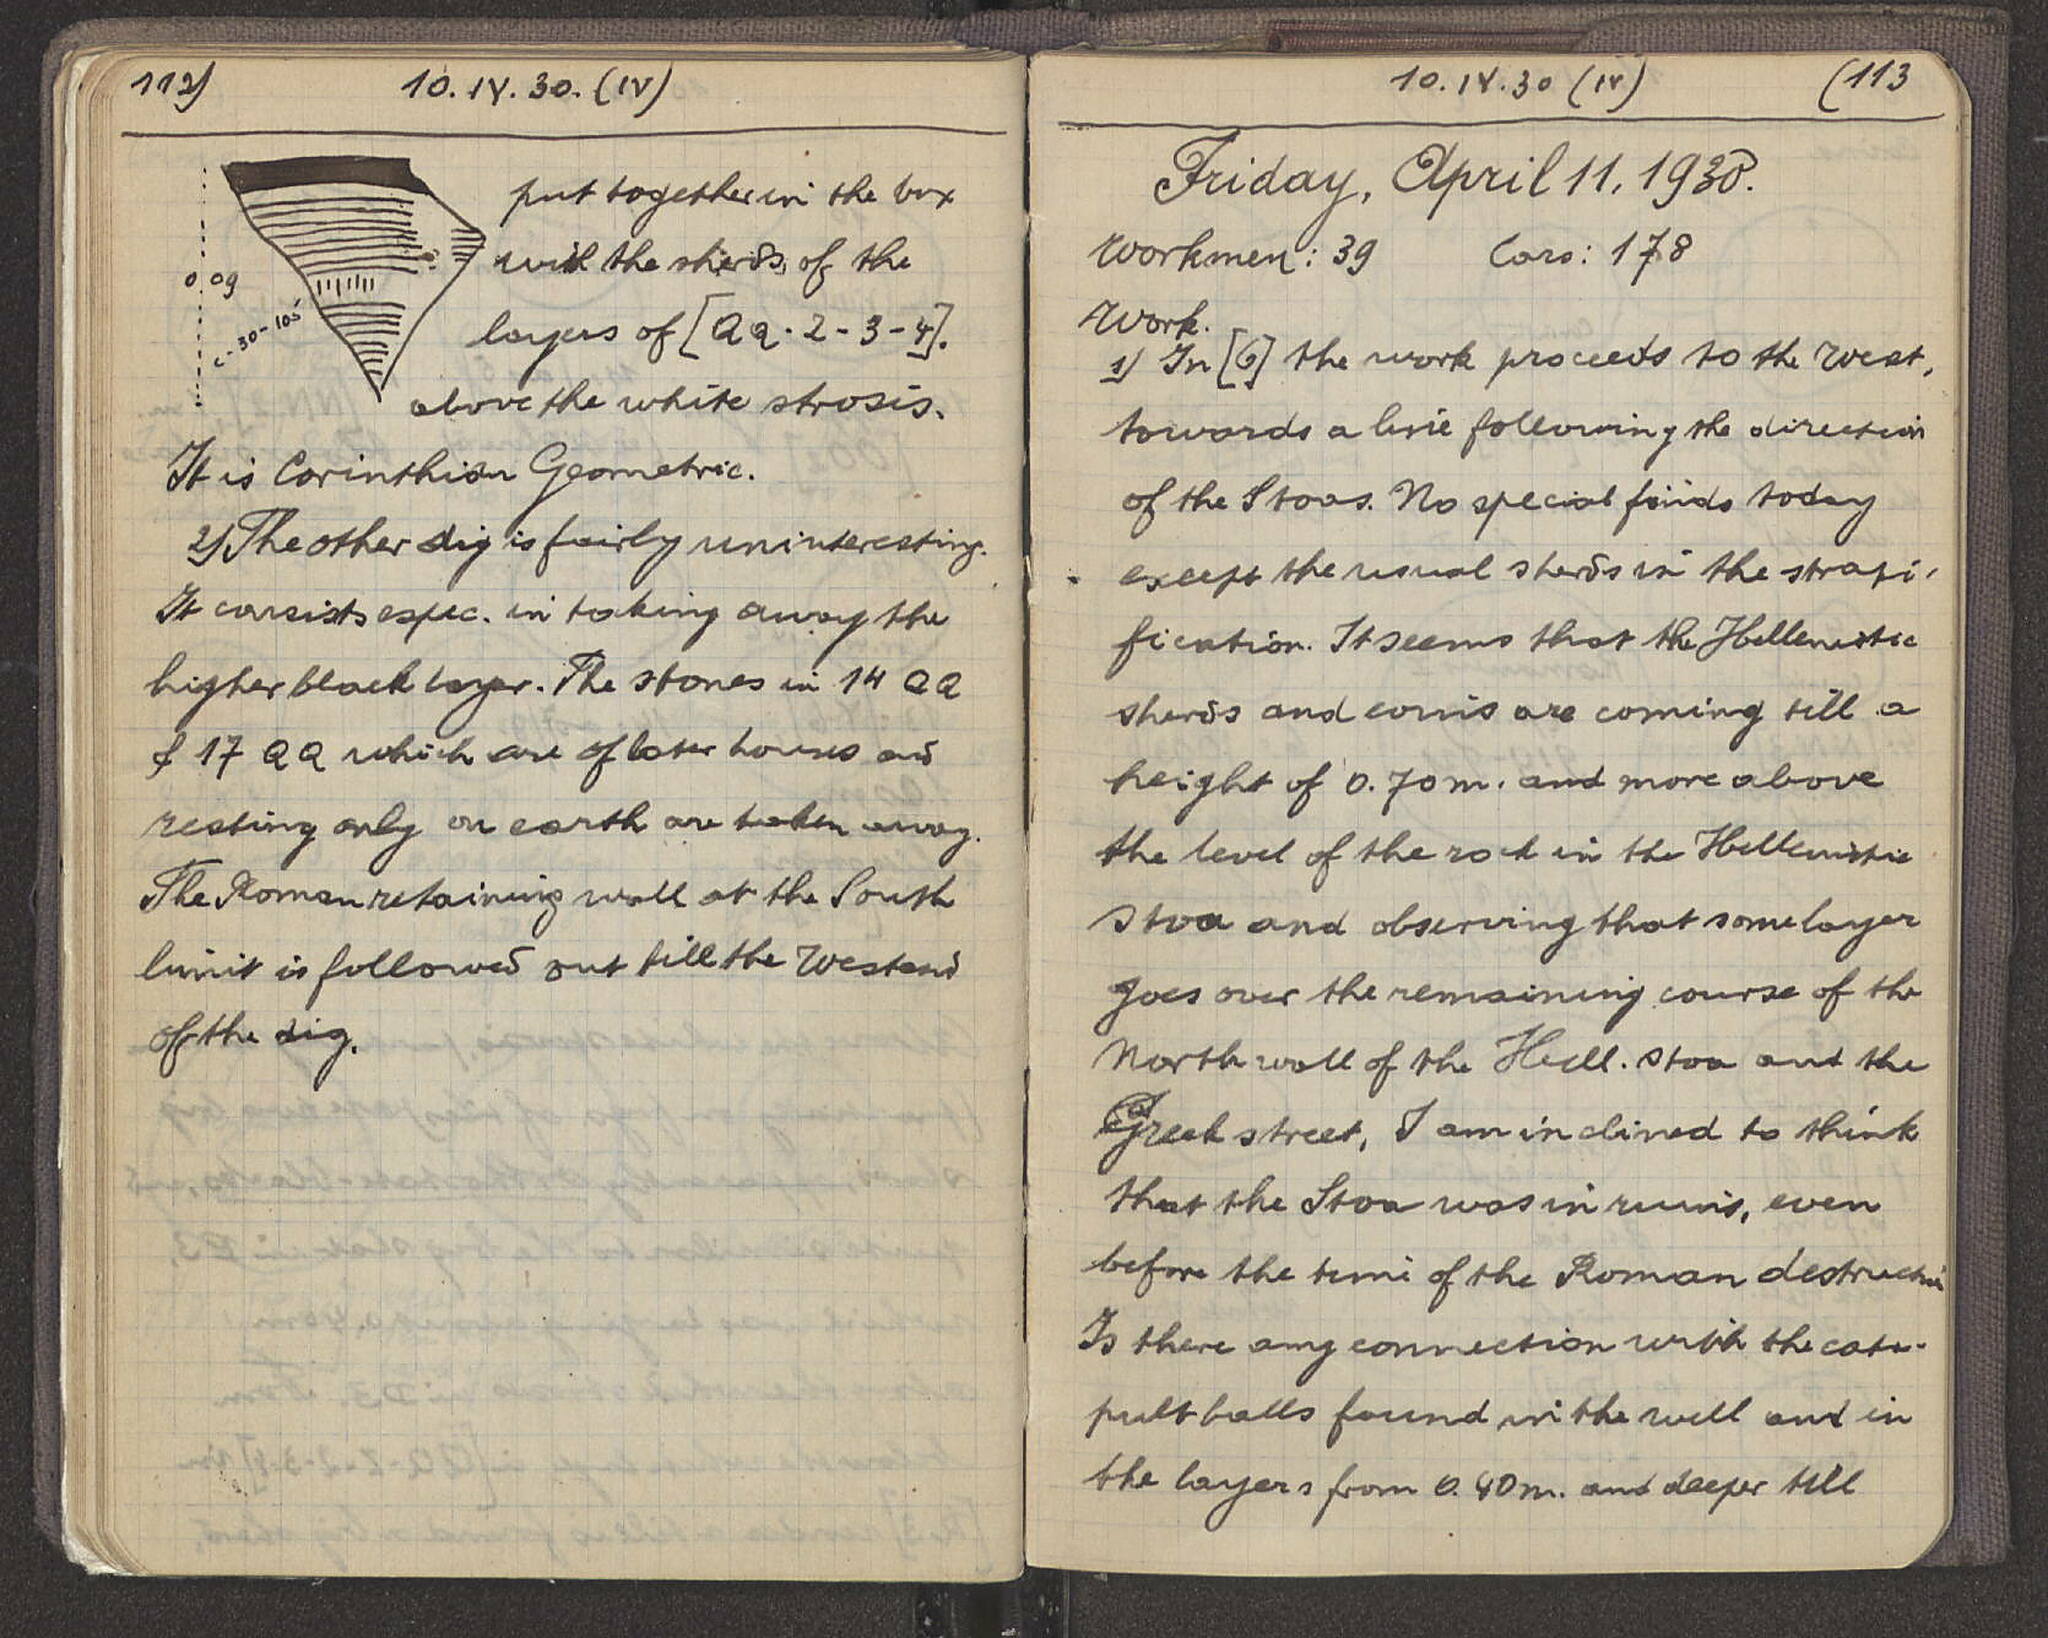 112)
10.IV.30.(IV)
0,09
c-30-105
put together in the box
with the sherds of the
layers of [QQ.2-3-4].
above the white strosis.
It is Corinthian Geometric.
2) The other dig is fairly uninteresting.
It consists espec. in taking away the
higher black layer. The stones in 14 QQ
& 17 QQ which are of later houses and
resting only on earth are taken away.
The Roman retaining wall at the South
limit is followed out till the West end
of the dig.
10.IV.30 (IV)
(113
Friday, April 11, 1930.
Workmen: 39 Cars: 178
Work.
1) In [6] the work proceeds to the West,
towards a line following the direction
of the Stoas. No special finds today
except the usual sherds in the strati-
fication. It seems that the Hellenistic
sherds and coins are coming till a
height of 0.70m. and more above
the level of the rock in the Hellenistic
Stoa and observing that some layer
goes over the remaining course of the
North wall of the Hell. Stoa and the
Greek street, I am inclined to think
that the Stoa was in ruins, even
before the time of the Roman destruction
Is there any connection with the cata-
pult balls found in the well and in
the layers from 0.40m. and deeper till